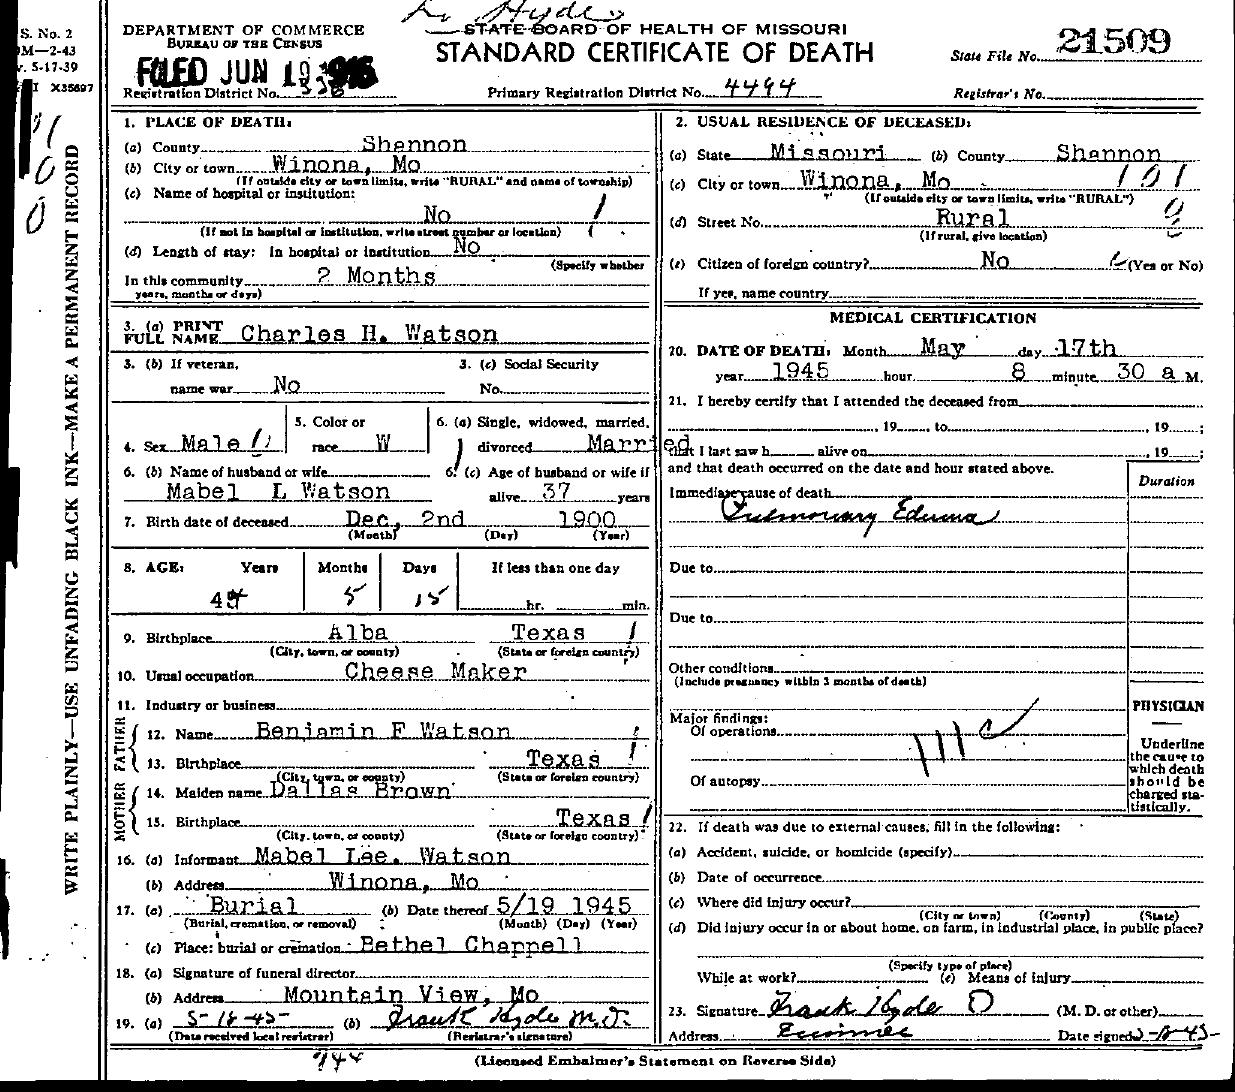 S. No. 2
M—2-43
5-17-39
I X35697
WRITE PLAINLY—USE UNFADING BLACK INK—MAKE A PERMANENT RECORD
Dr Hyde
DEPARTMENT OF COMMERCE
BUREAU OF THE CENSUS
FILED JUN 19
Registration District No.
STATE BOARD OF HEALTH OF MISSOURI
STANDARD CERTIFICATE OF DEATH
Primary Registration District No. 4494
State File No. 21509
Registrar's No.
1. PLACE OF DEATH:
(a) County Shannon
(b) City or town Winona, Mo
(If outside city or town limits, write "RURAL" and name of township)
(c) Name of hospital or institution:
No
(If not in hospital or institution, write street number or location)
(d) Length of stay: In hospital or institution No
(Specify whether
In this community 2 Months
years, months or days)
3. (a) PRINT
FULL NAME Charles H. Watson
3. (b) If veteran,
name war No
3. (c) Social Security
No.
4. Sex Male
5. Color or
race W
6. (a) Single, widowed, married,
divorced Married
6. (b) Name of husband or wife
Mabel L Watson
6. (c) Age of husband or wife if
alive 37 years
7. Birth date of deceased Dec, 2nd 1900
(Month) (Day) (Year)
8. AGE: Years Months Days If less than one day
44 5 15 hr. min.
9. Birthplace Alba Texas
(City, town, or county) (State or foreign country)
10. Usual occupation Cheese Maker
11. Industry or business
FATHER
12. Name Benjamin F Watson
13. Birthplace Texas
(City, town, or county) (State or foreign country)
MOTHER
14. Maiden name Dallas Brown
15. Birthplace Texas
(City, town, or county) (State or foreign country)
16. (a) Informant Mabel Lee. Watson
(b) Address Winona, Mo
17. (a) Burial (b) Date thereof 5/19 1945
(Burial, cremation, or removal) (Month) (Day) (Year)
(c) Place: burial or cremation Bethel Chappell
18. (a) Signature of funeral director
(b) Address Mountain View, Mo
19. (a) 5-18-45- (b) Frank Hyde M.D.
(Date received local registrar) (Registrar's signature)
944
2. USUAL RESIDENCE OF DECEASED:
(a) State Missouri (b) County Shannon
(c) City or town Winona, Mo 101
(If outside city or town limits, write "RURAL")
(d) Street No. Rural
(If rural, give location)
(e) Citizen of foreign country? No (Yes or No)
If yes, name country
MEDICAL CERTIFICATION
20. DATE OF DEATH: Month May day 17th
year 1945 hour 8 minute 30 a M.
21. I hereby certify that I attended the deceased from
, 19 , to , 19 ;
that I last saw h alive on , 19 ;
and that death occurred on the date and hour stated above.
Duration
Immediate cause of death
Pulmonary Edema
Due to
Due to
Other conditions
(Include pregnancy within 3 months of death)
Major findings:
Of operations
111c
Of autopsy
PHYSICIAN
Underline
the cause to
which death
should be
charged sta-
tistically.
22. If death was due to external causes, fill in the following:
(a) Accident, suicide, or homicide (specify)
(b) Date of occurrence
(c) Where did injury occur?
(City or town) (County) (State)
(d) Did injury occur in or about home, on farm, in industrial place, in public place?
(Specify type of place)
While at work? (e) Means of injury
23. Signature Frank Hyde (M. D. or other)
Address Eminence Date signed
(Licensed Embalmer's Statement on Reverse Side)